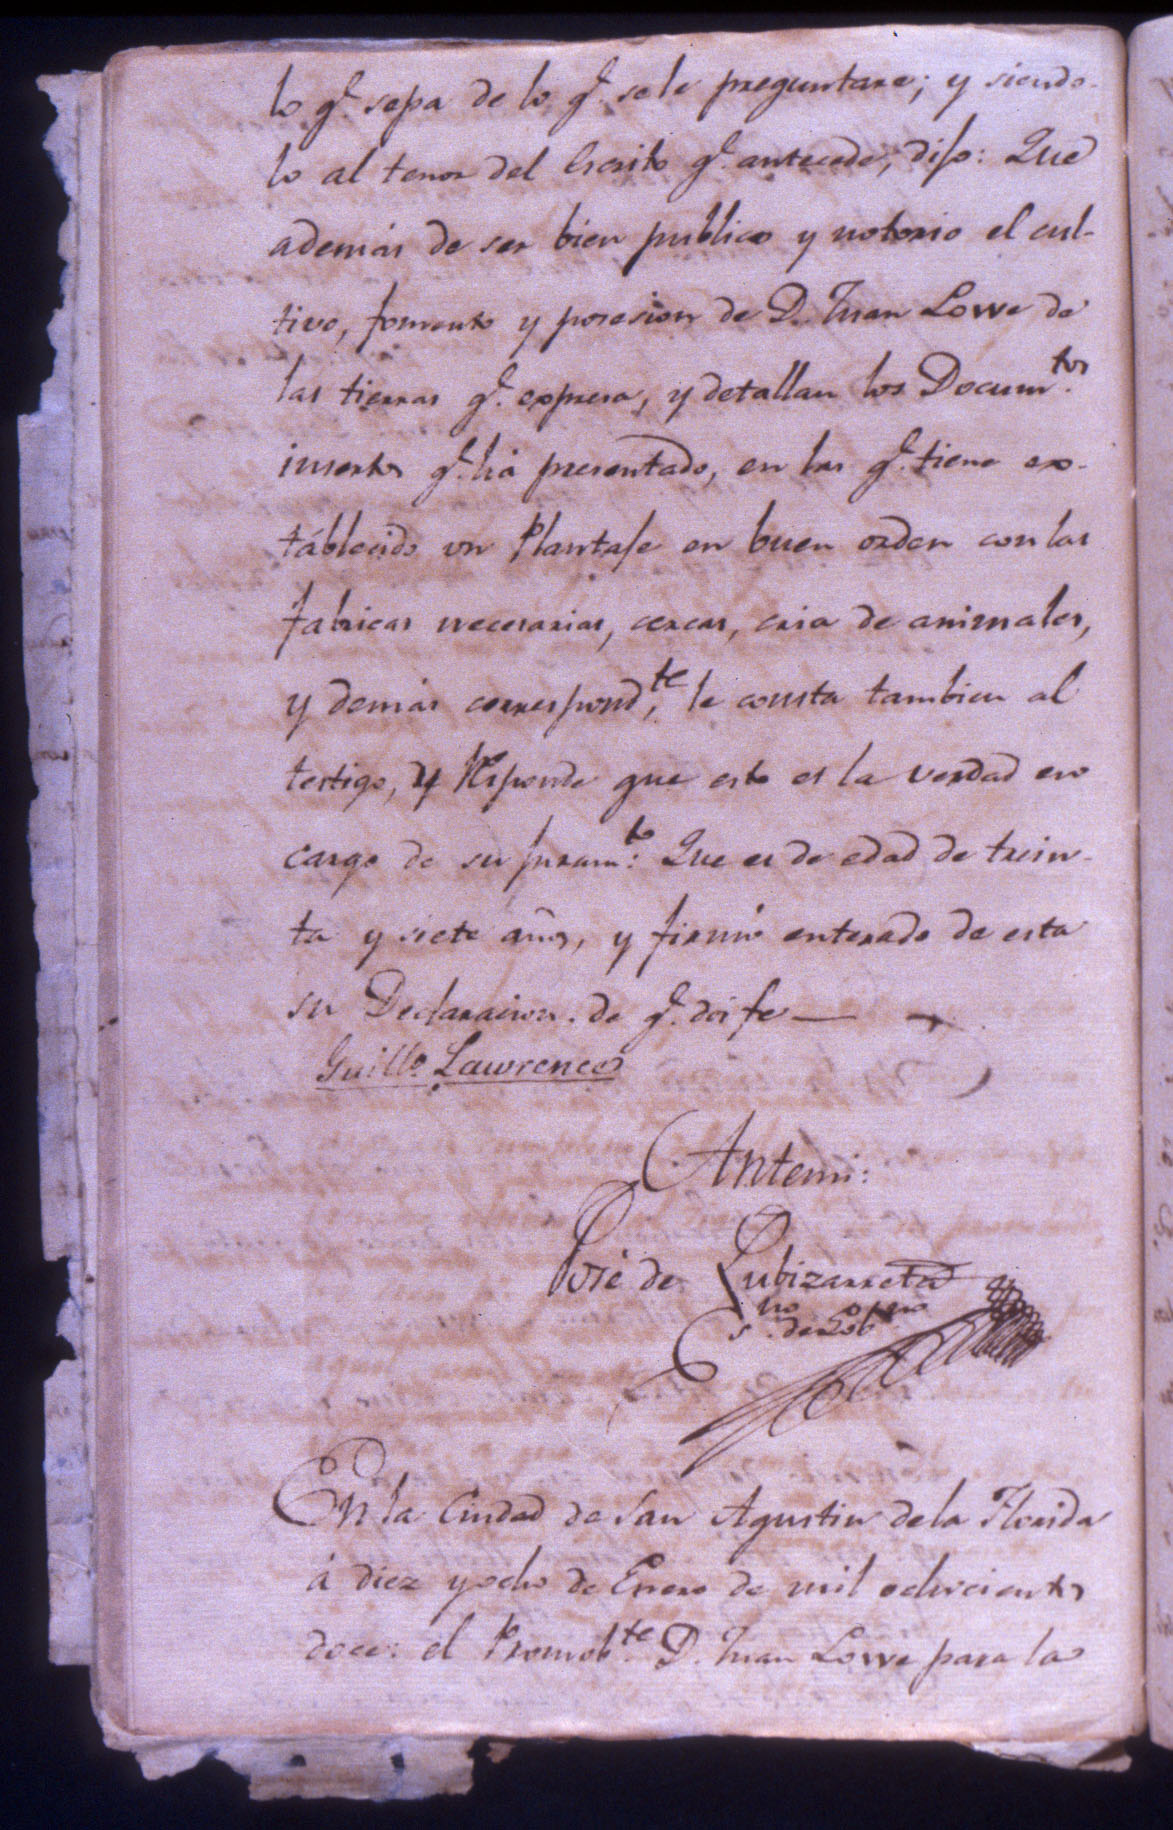 lo q.e sepa de lo q.e se le preguntare; y siendo-
lo al tenor del Escrito q.e antecede, dijo: Que
además de ser bien publico y notorio el cul-
tivo, fomento y posesion de D. Juan Lowe de
las tierras q.e expresa, y detallan los Docum.tos
insertos q.e há presentado, en las q.e tiene es-
táblecido un Plantaje en buen orden con las
fabricas necesarias, cercas, cria de animales,
y demás correspond.te, le consta tambien al
testigo, y Responde que esto es la verdad en
cargo de su juram.to: Que es de edad de trein-
ta y siete años, y firmó enterado de esta
su Declaracion. de q.e doi fe—
Guill.o Lawrence
Antemi:
José de Zubizarreta
Es.no de Gob.no
En la Ciudad de San Agustin de la Florida
á diez y ocho de Enero de mil ochocientos
doce: el Promob.te D. Juan Lowe para la